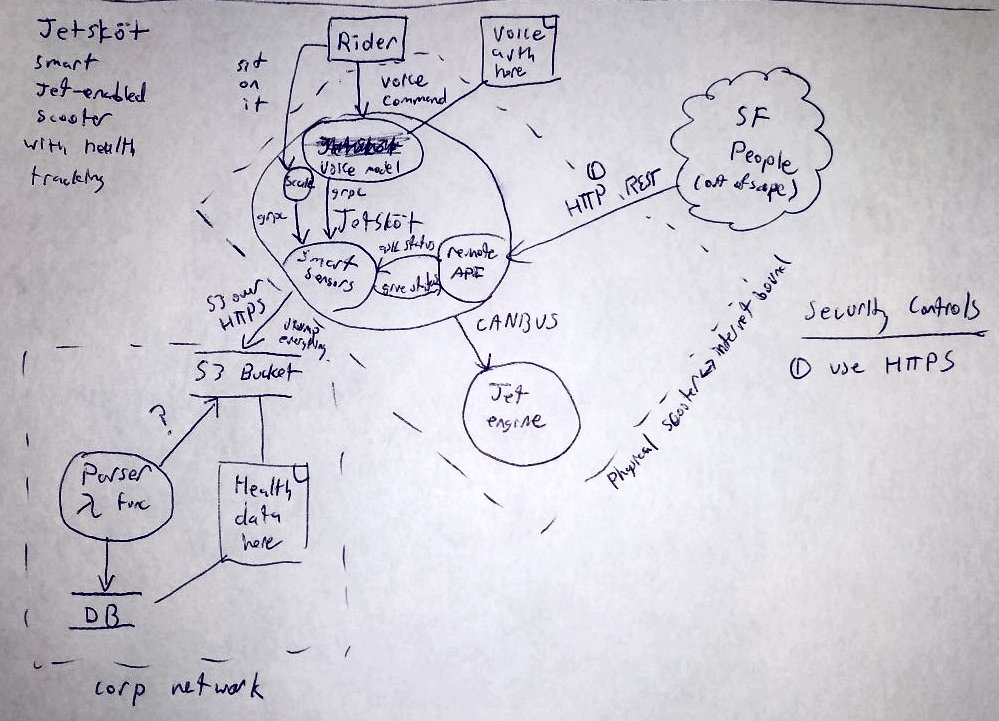 Jetsköt
smart
Jet-enabled
scooter
with health
tracking
Rider
Voice
auth
here
sit
on
it
voice
command
voice model
scale
grpc
grpc
Jetsköt
smart
sensors
give status
remote
API
SF
People
(out of scope)
①
HTTP, REST
S3 over
HTTPS
everything
CANBUS
Jet
engine
Physical scooter ↔ internet
Security Controls
① use HTTPS
S3 Bucket
?
Parser
λ func
Health
data
here
DB
corp network